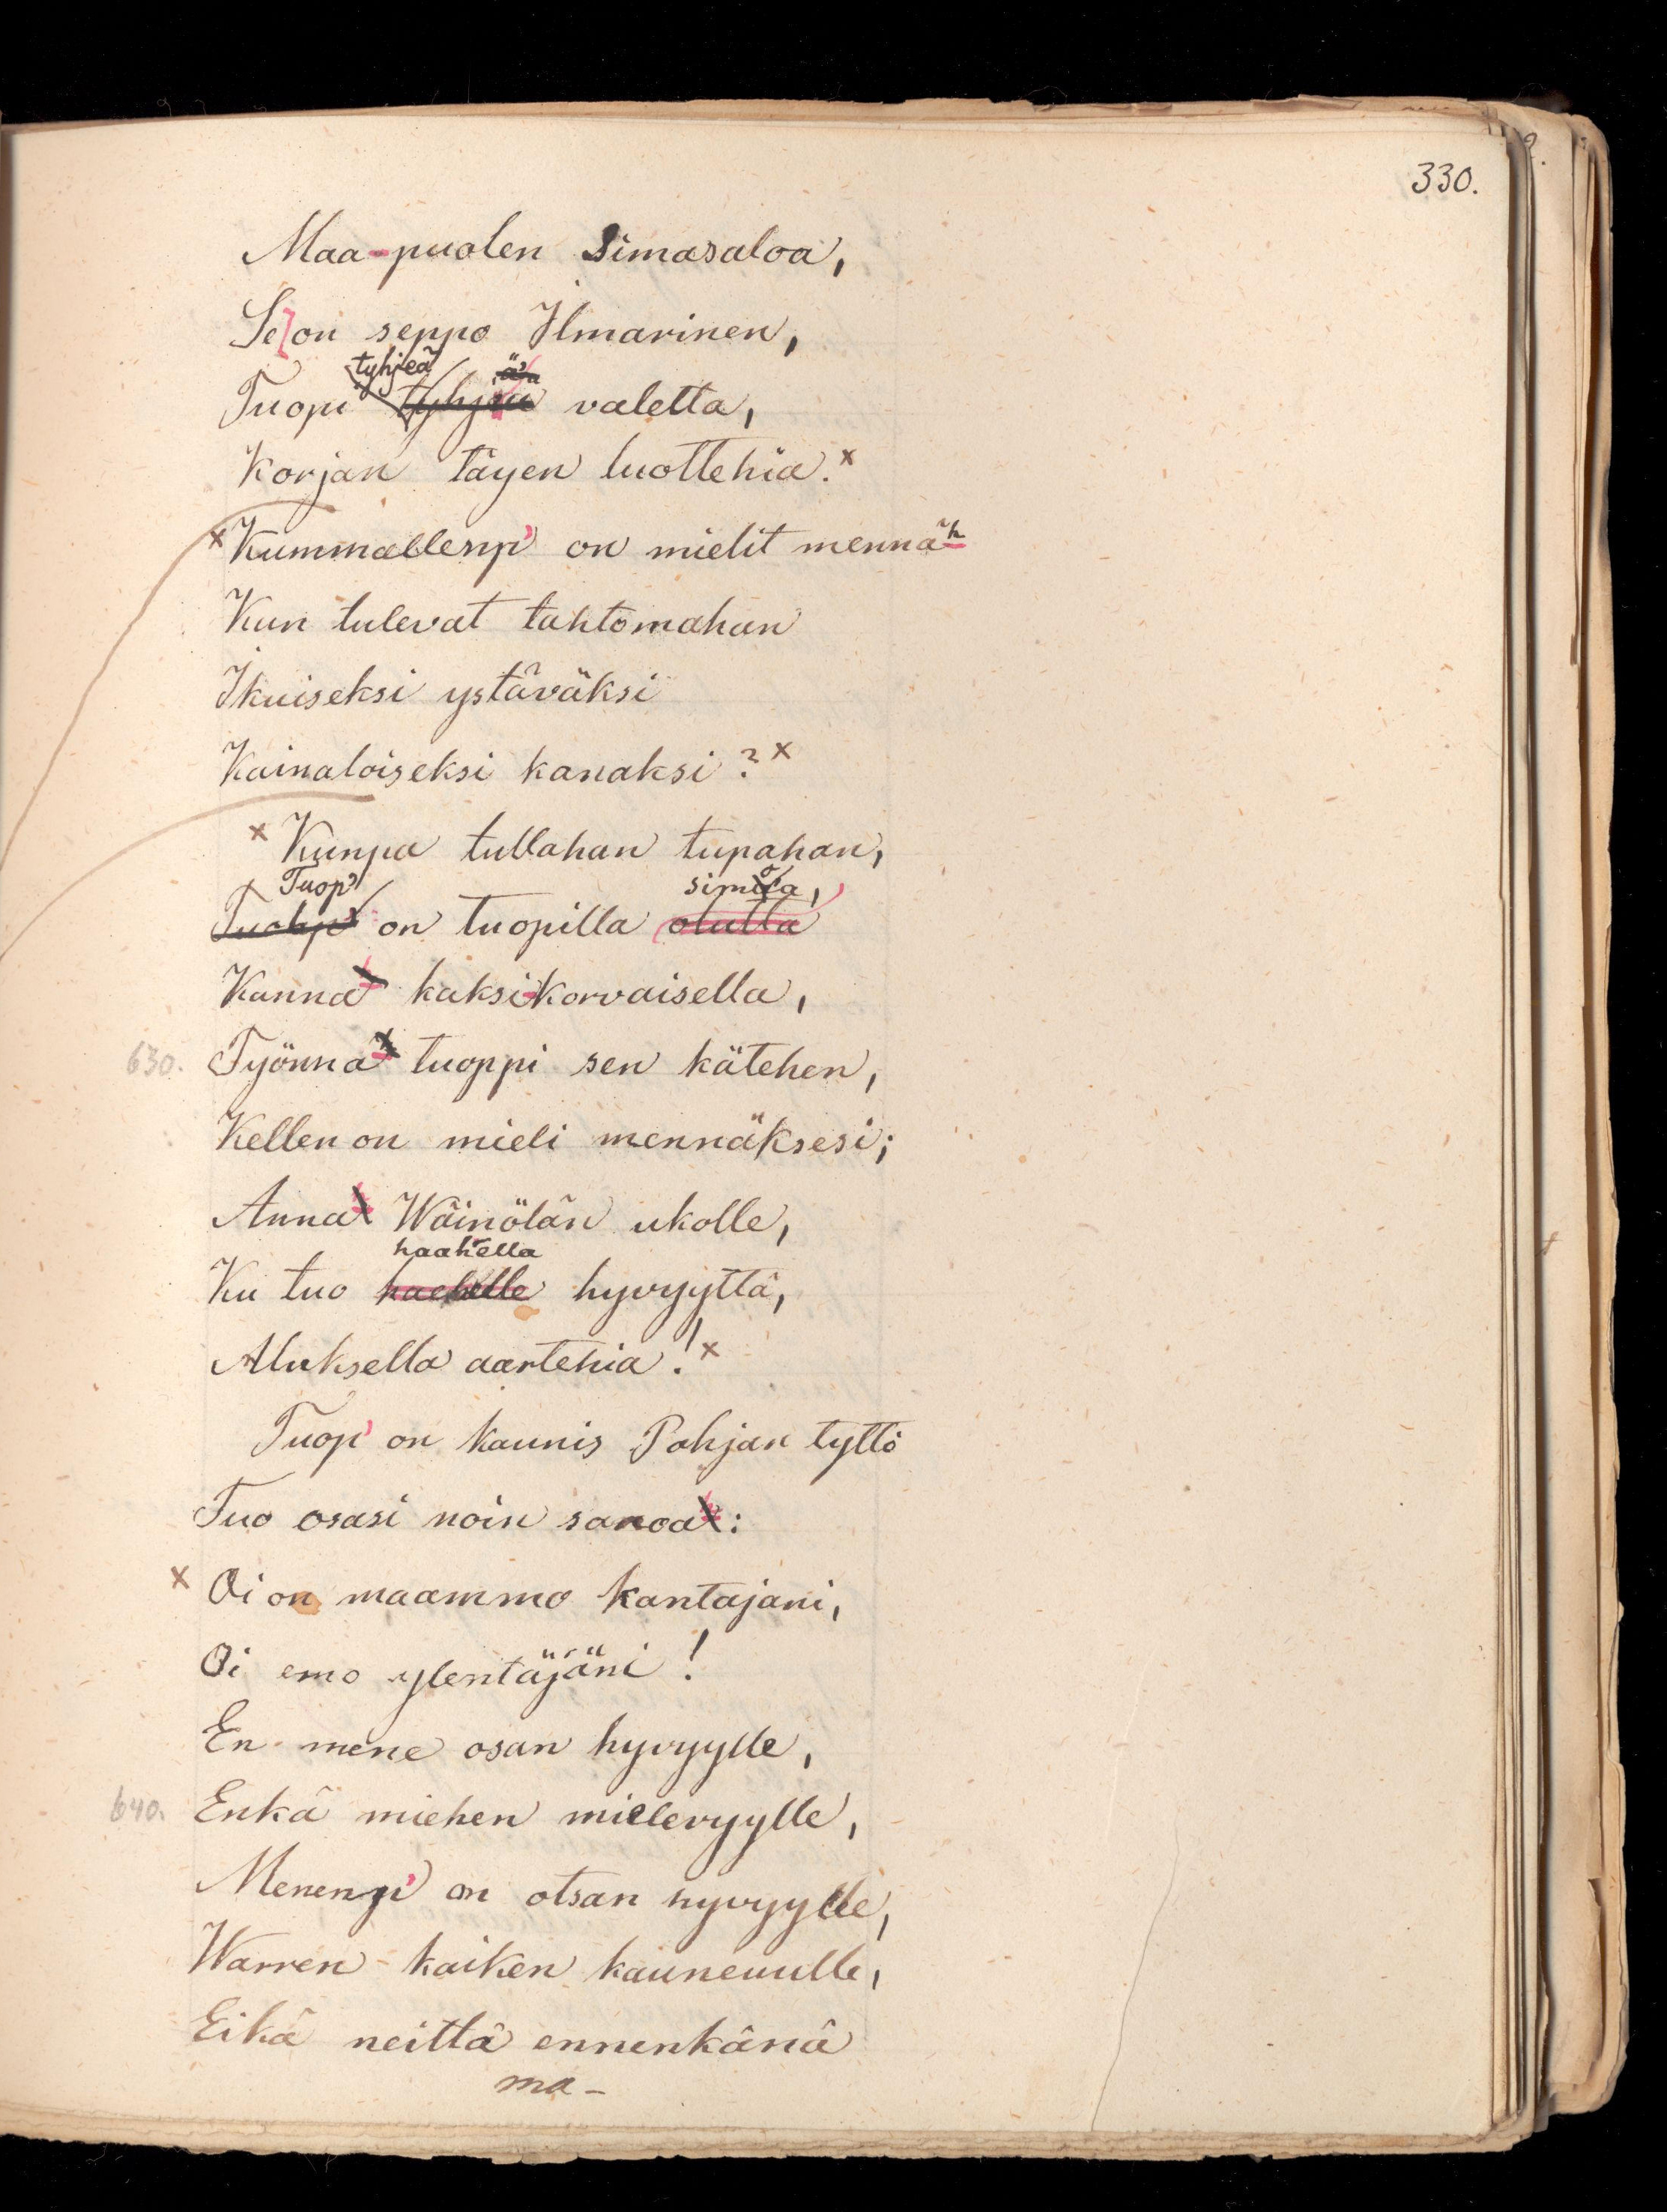 330.
Maa-puolen Simasaloa,
Se on seppo Ilmarinen,
tyhjeä
Tuopi tyhjiä valetta,
Korjan täyen luottehia.x
xKummallenp' on mielit mennäh
Kun tulevat tahtomahan
Ikuiseksi ystäväksi
Kainaloiseksi kanaksi?x
x Kunpa tullahan tupahan,
Tuop' simoa,
on tuopilla olutta
Kanna kaksikorvaisella,
630. Työnnä tuoppi sen kätehen,
Kellen on mieli mennäksesi;
Anna Wäinölän ukolle,
haahella
Ku tuo haahella hyvyyttä,
Aluksella aartehia!x
Tuop' on kaunis Pohjan tyttö
Tuo osasi noin sanoa:
x Oi on maammo kantajani,
Oi emo ylentäjäni!
En mene osan hyvyylle,
640. Enkä miehen mielevyylle,
Menenp' on otsan hyvyylle,
Warren kaiken kauneuulle,
Eikä neittä ennenkänä
ma-